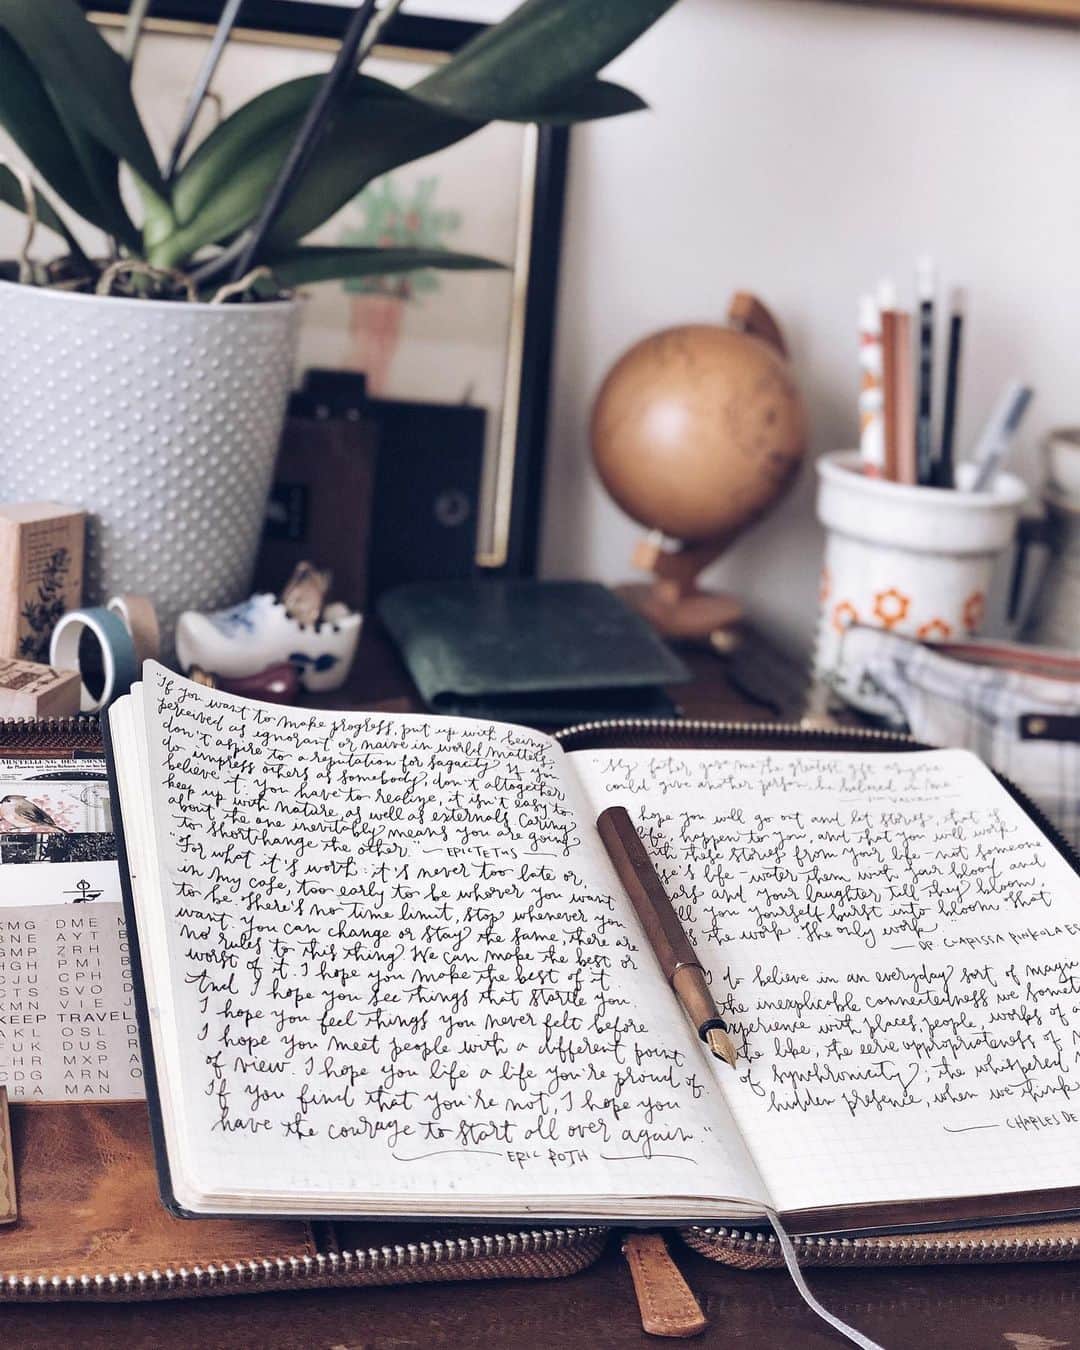 "If you want to make progress, put up with being
perceived as ignorant or naive in world matters,
don't aspire to a reputation for sagacity. If you
do impress others as somebody, don't altogether
believe it. you have to realize, it isn't easy to
keep up with nature, as well as externals. Caring
about the one inevitably means you are going
to shortchange the other." — EPICTETUS —
"For what it's worth: it's never too late or,
in my case, too early to be whoever you want
to be. There's no time limit, stop whenever you
want. You can change or stay the same, there are
no rules to this thing. We can make the best or
worst of it. I hope you make the best of it.
And I hope you see things that startle you.
I hope you feel things you never felt before.
I hope you meet people with a different point
of view. I hope you life a life you're proud of.
If you find that you're not, I hope you
have the courage to start all over again."
— ERIC ROTH —
"My father gave me the greatest gift anyone
could give another person, he believed in me."
— JIM VALVANO
hope you will go out and let stories, that is
life, happen to you, and that you will work
with these stories from your life – not someone
else's life – water them with your blood and
tears and your laughter till they bloom,
till you yourself burst into bloom. That
is the work. The only work.
— DR. CLARISSA PINKOLA ES
I do believe in an everyday sort of magic
the inexplicable connectedness we somet
experience with places, people, works of a
the like, the eerie appropriateness of
of synchronicity; the whispered
hidden presence, when we think
— CHARLES DE
ARSTELLUNG DEM
KMG DME M
BNE AYT B
GMP ZRH
HGH PMI
CJU CPH
CTS SVO D
KMN VIE J
KEEP TRAVEL
KKL OSL D
FUK DUS R
CHR MXP A
CDG ARN O
CRA MAN